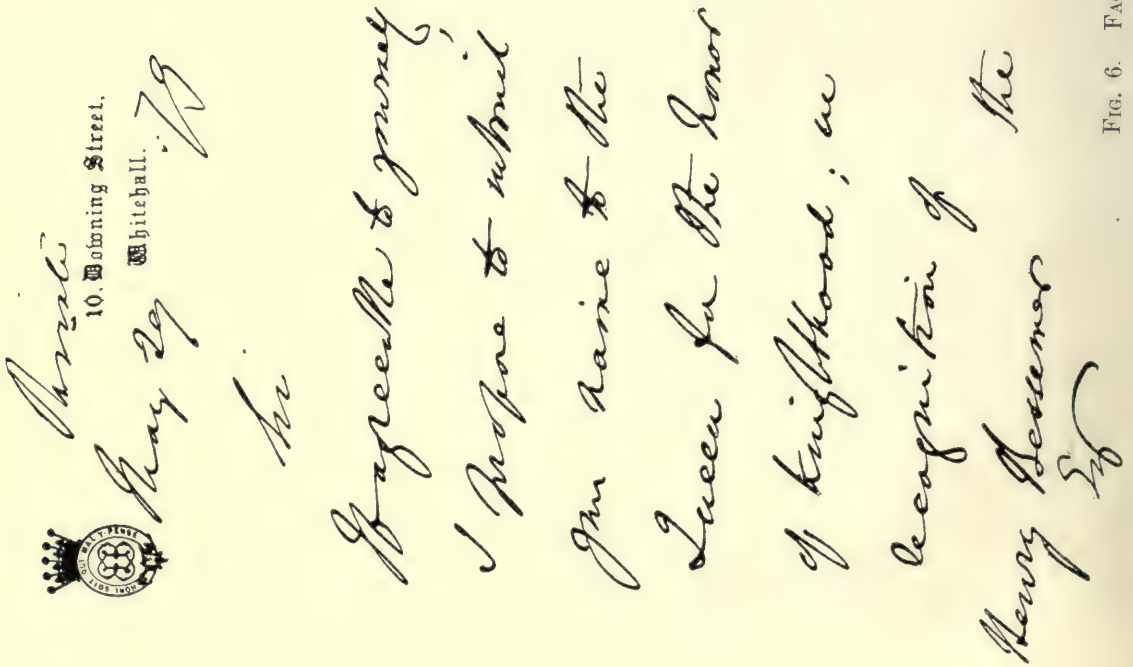 HONI SOIT QUI MAL Y PENSE
Private
10, Downing Street,
Whitehall.
May 29 /79
Sir
If agreeable to yourself,
I propose to submit
your name to the
Queen for the honor
of knighthood; in
recognition of the
Henry Bessemer
Esq
FIG. 6. FAC